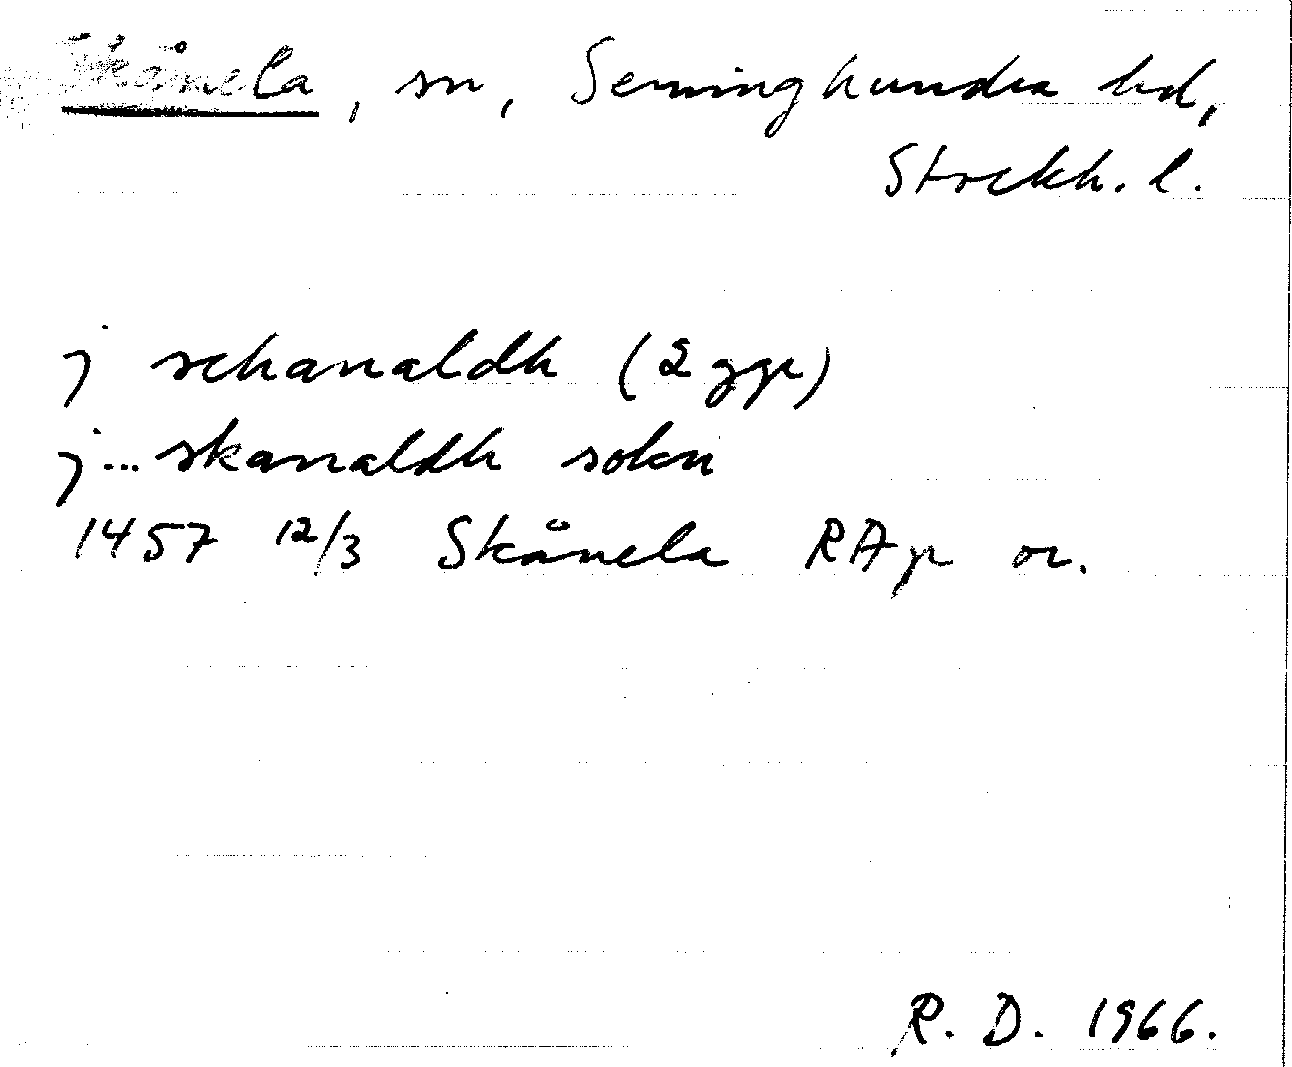 Skånela, sn, Seminghundra hd,
Stockh. l.
j schanaldh (2 ggr)
j... skanaldh sokn
1457 12/3 Skånela RAp or.
R. D. 1966.